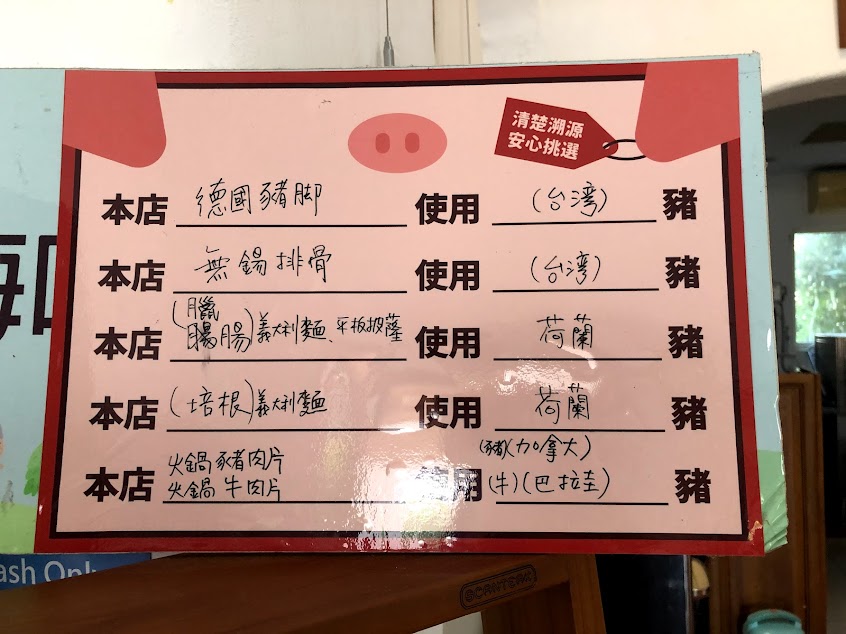 清楚溯源
安心挑選
本店 德國豬腳 使用 (台湾) 豬
本店 無錫排骨 使用 (台湾) 豬
(臘
本店 腸)義大利麵、平板披薩 使用 荷蘭 豬
本店 (培根)義大利麵 使用 荷蘭 豬
火鍋豬肉片 (豬)(加拿大)
本店 火鍋牛肉片 使用 (牛)(巴拉圭) 豬
ash Only
SCANTEAK